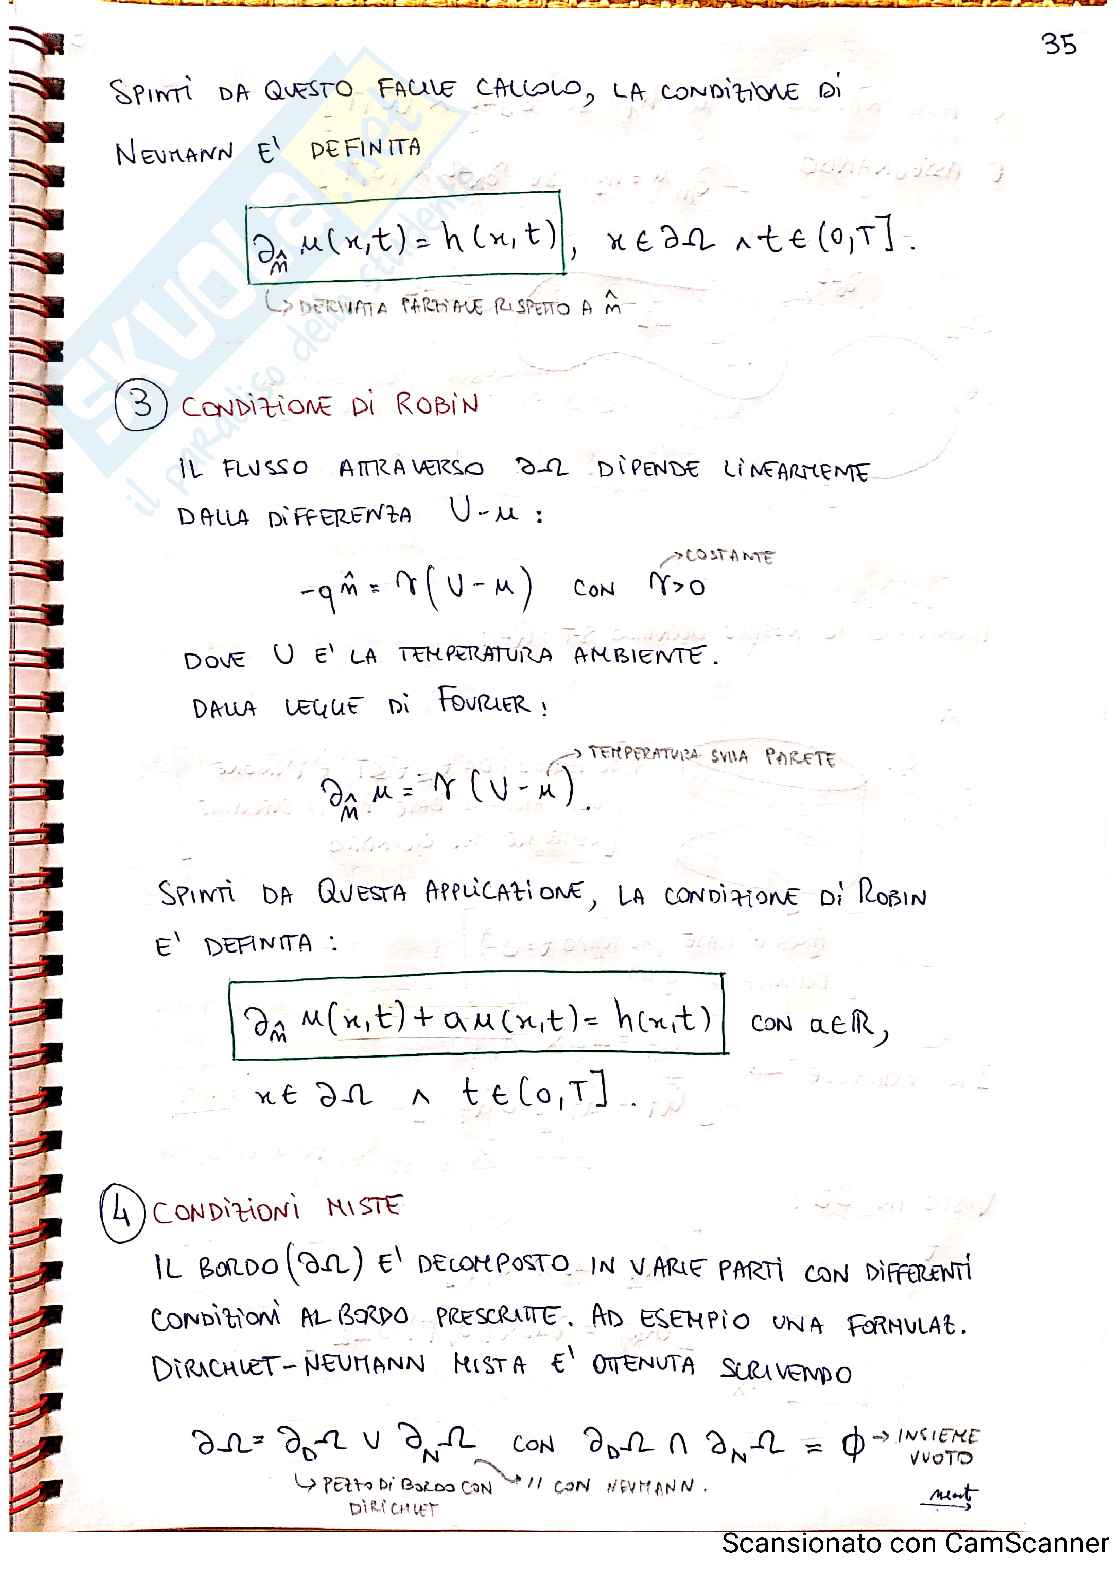 35
SPINTI DA QUESTO FACILE CALCOLO, LA CONDIZIONE DI
NEUMANN E' DEFINITA
∂n̂ u(x,t) = h(x,t), x ∈ ∂Ω ∧ t ∈ (0,T].
↳ DERIVATA PARZIALE RISPETTO A n̂
3 CONDIZIONE DI ROBIN
IL FLUSSO ATTRAVERSO ∂Ω DIPENDE LINEARMENTE
DALLA DIFFERENZA U-u :
→ COSTANTE
-q n̂ = γ(U-u) CON γ>0
DOVE U E' LA TEMPERATURA AMBIENTE.
DALLA LEGGE DI FOURIER:
→ TEMPERATURA SULLA PARETE
∂n̂ u = γ(U-u).
SPINTI DA QUESTA APPLICAZIONE, LA CONDIZIONE DI ROBIN
E' DEFINITA :
∂n̂ u(x,t) + a u(x,t) = h(x,t) CON a ∈ ℝ,
x ∈ ∂Ω ∧ t ∈ (0,T].
4 CONDIZIONI MISTE
IL BORDO (∂Ω) E' DECOMPOSTO IN VARIE PARTI CON DIFFERENTI
CONDIZIONI AL BORDO PRESCRITTE. AD ESEMPIO UNA FORMULAZ.
DIRICHLET-NEUMANN MISTA E' OTTENUTA SCRIVENDO
∂Ω = ∂DΩ ∪ ∂NΩ CON ∂DΩ ∩ ∂NΩ = ϕ → INSIEME
VUOTO
↳ PEZZO DI BORDO CON
DIRICHLET
→ // CON NEUMANN.
next
SKUOLA.net
il paradiso dello studente
Scansionato con CamScanner